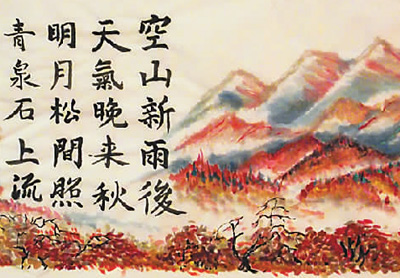 空山新雨後
天氣晚来秋
明月松間照
青泉石上流